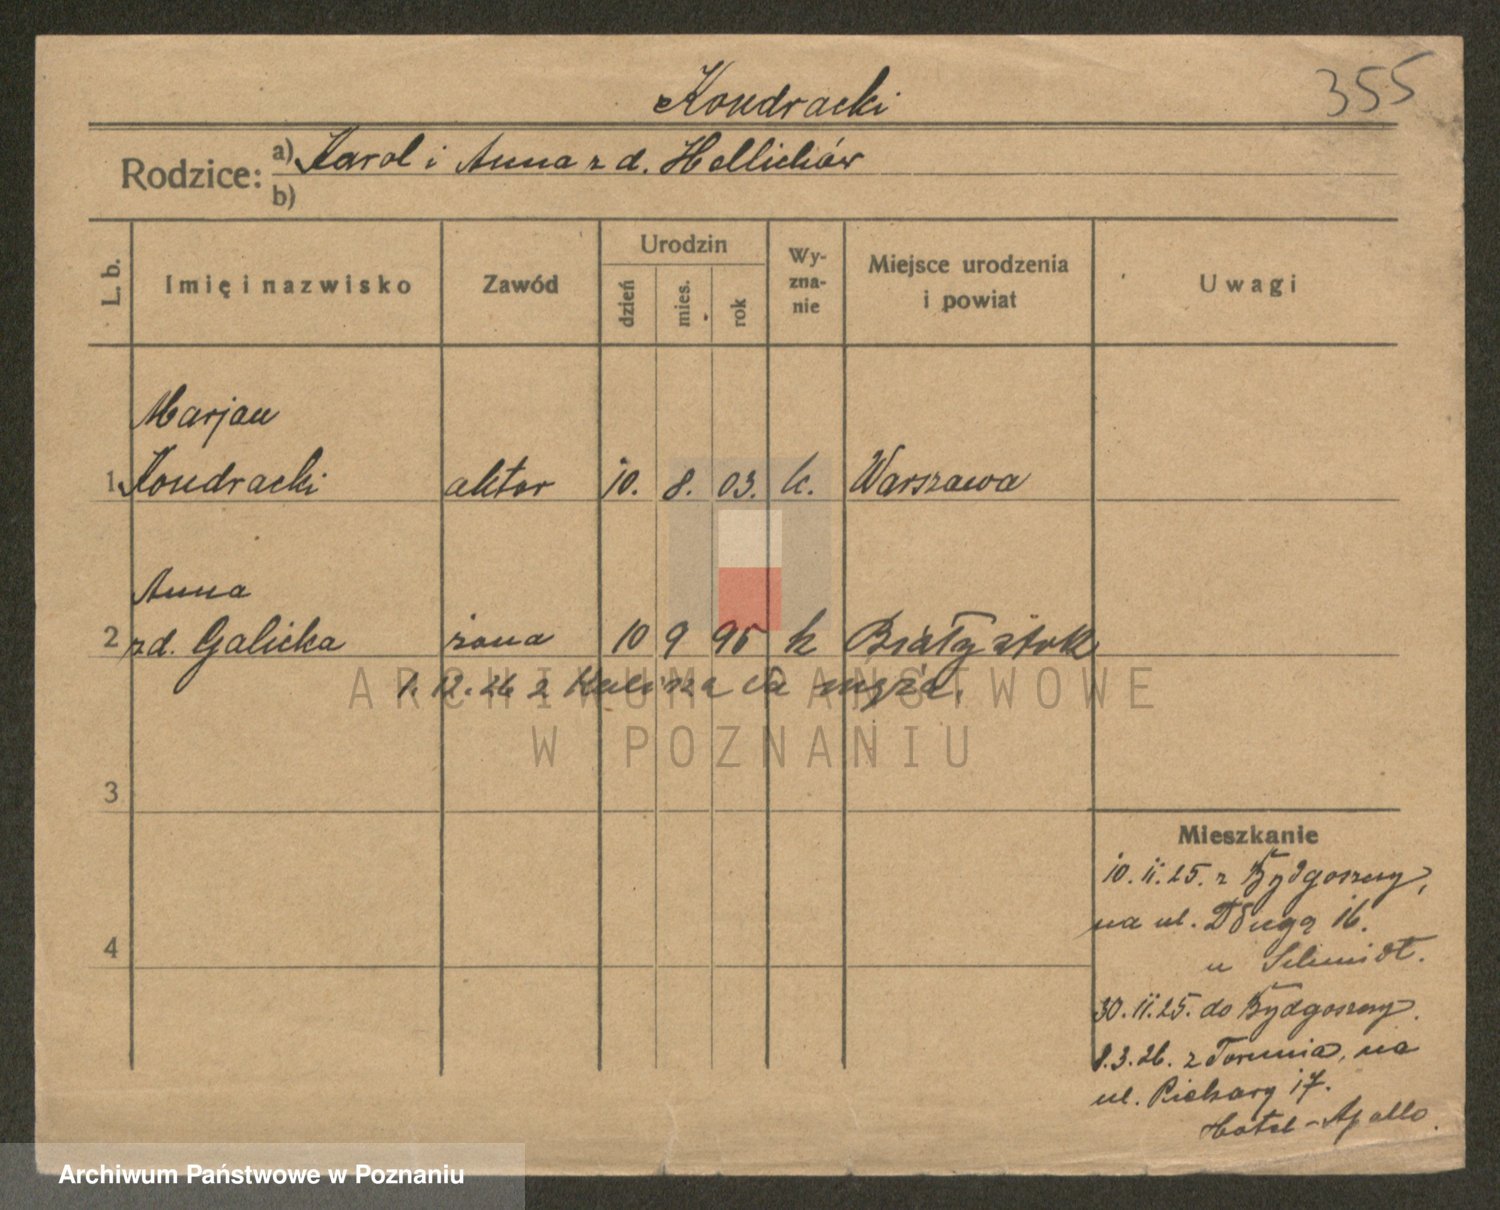 355
Kondracki
Rodzice: a) Karol i Anna z d. Hellichów
b)
L. b.
Imię i nazwisko
Zawód
Urodzin
dzień
mies.
rok
Wy-
zna-
nie
Miejsce urodzenia
i powiat
Uwagi
Marjan
1 Kondracki aktor 10. 8. 03. k. Warszawa
Anna
2 zd. Galicka żona 10 9 95 k Białystok
1.12.26 z Kalisza do męża.
ARCHIWUM PAŃSTWOWE
W POZNANIU
3
4
Mieszkanie
10.11.25. z Bydgoszczy,
na ul. Długą 16.
u Schmidt.
30.11.25. do Bydgoszczy.
8.3.26. z Torunia, na
ul. Piekary 17.
Hotel-Apollo.
Archiwum Państwowe w Poznaniu